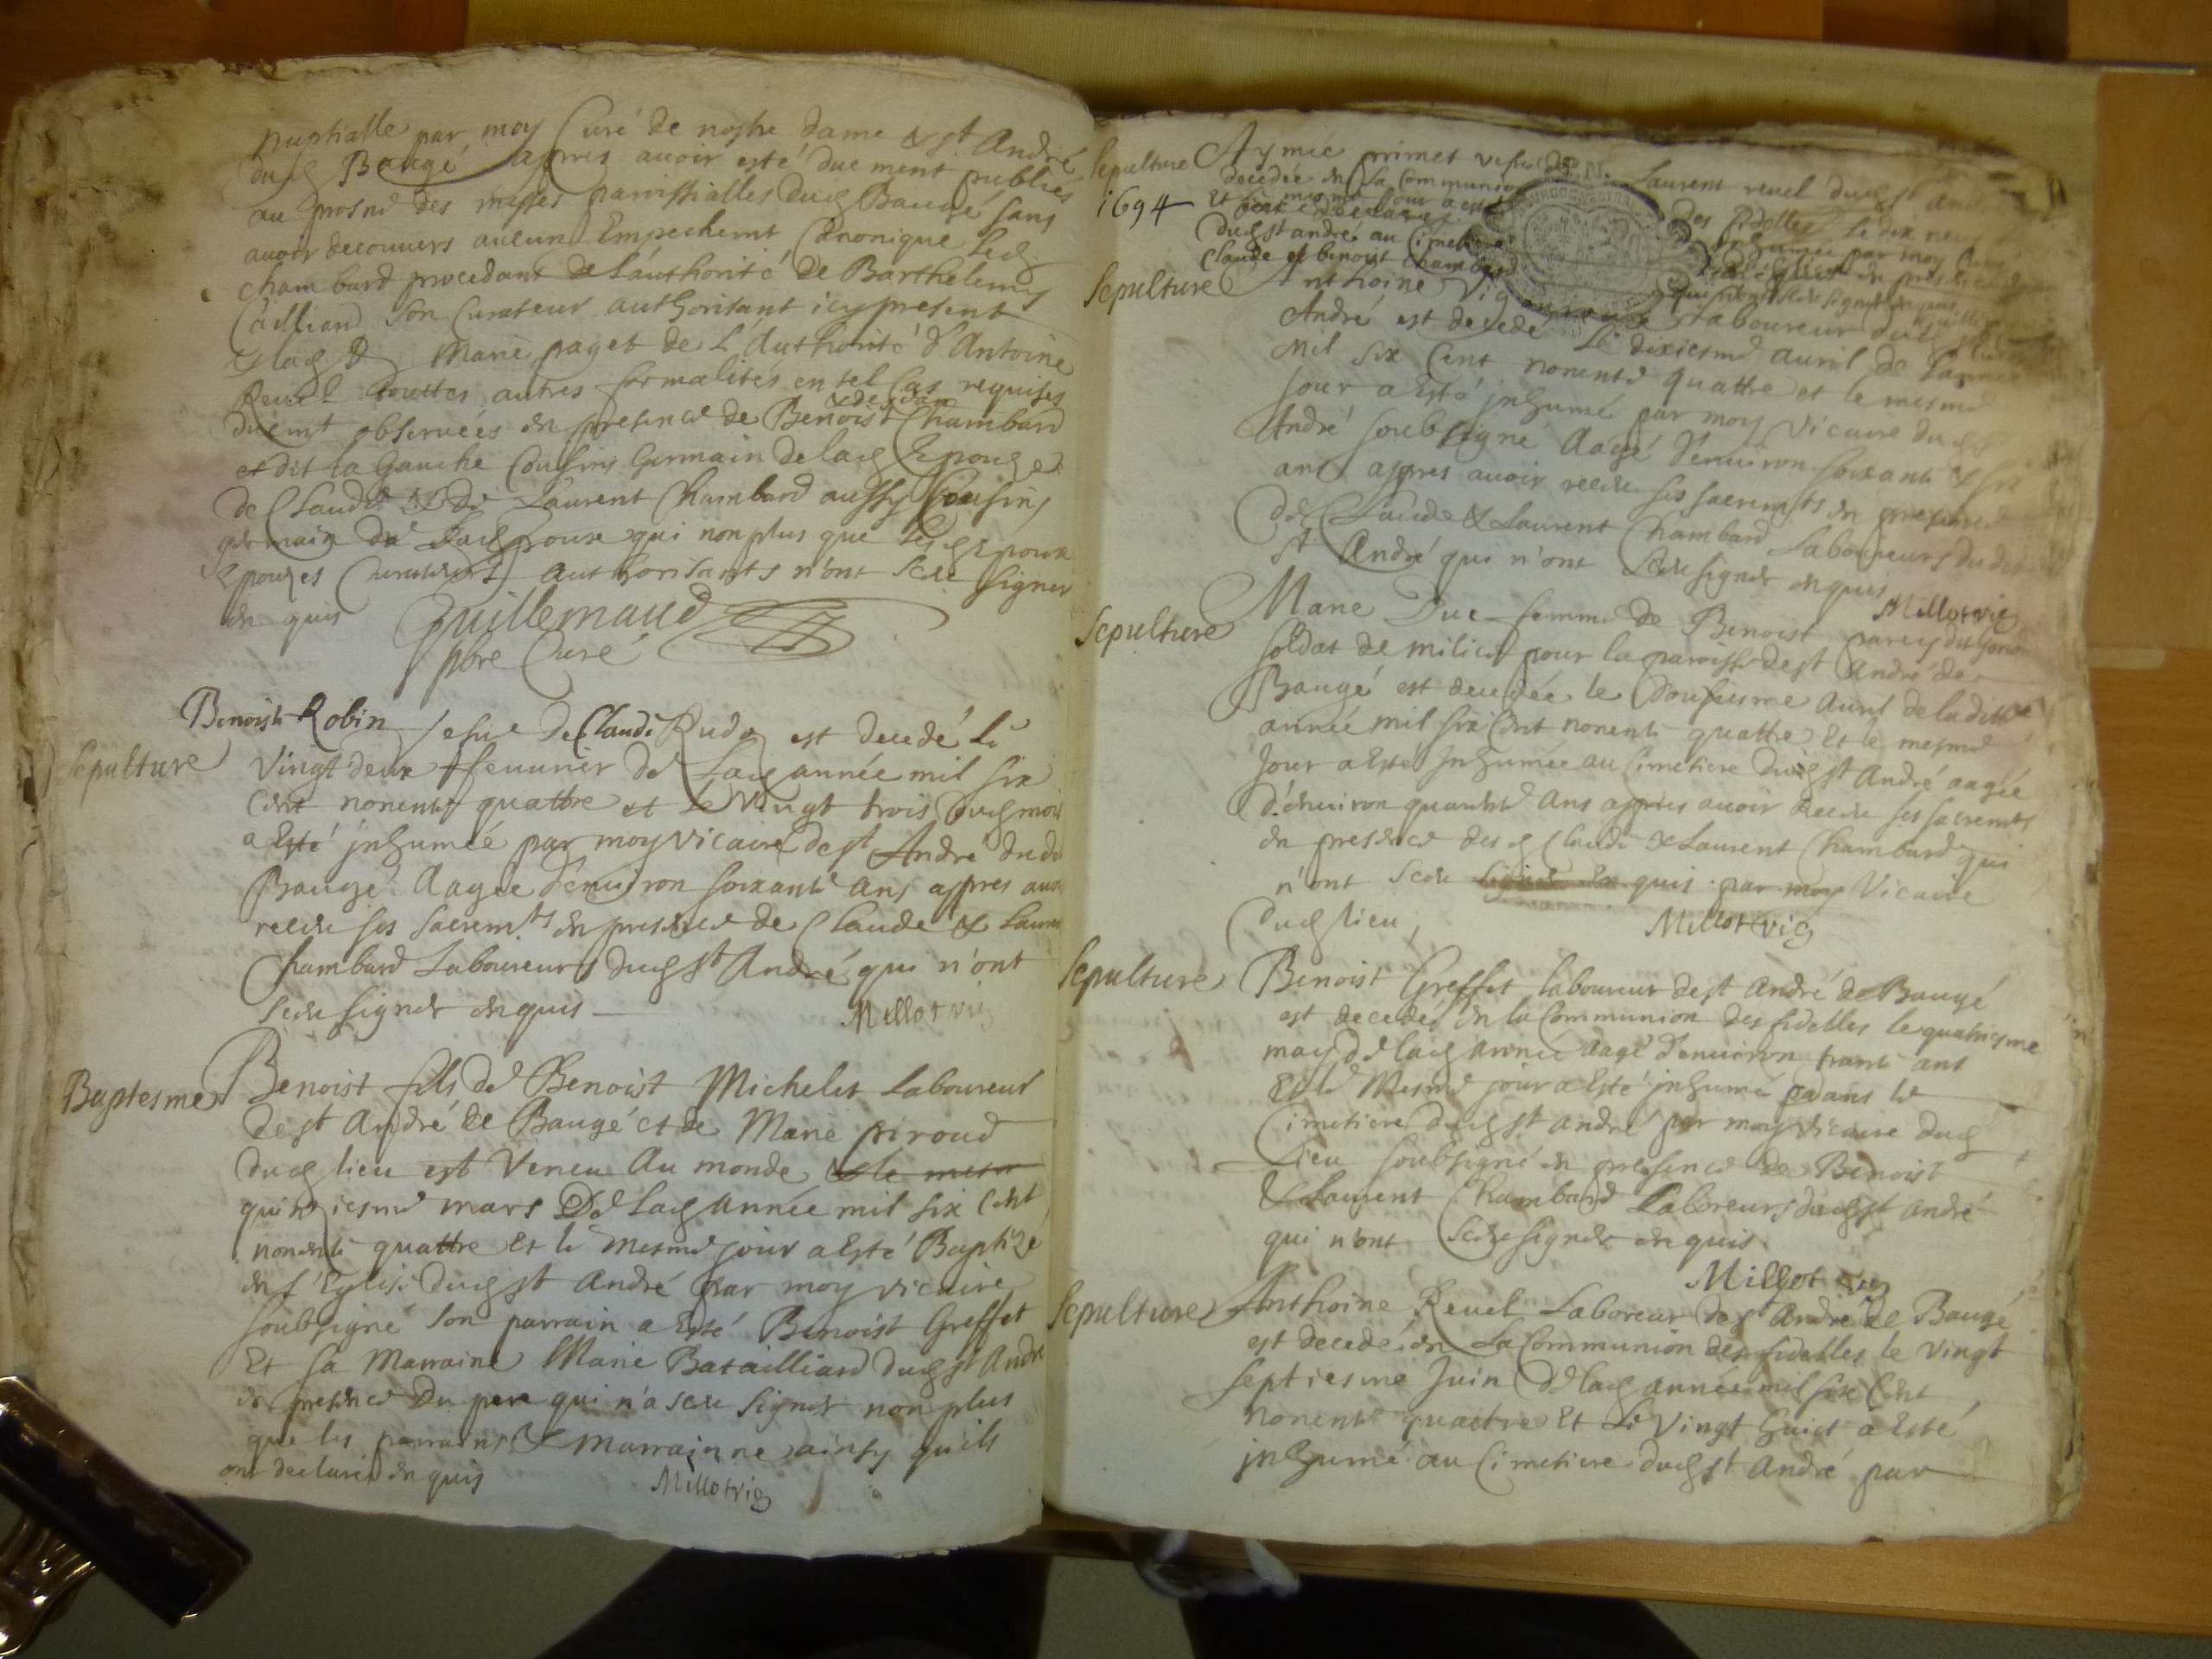 nuptialle par moy Curé de nostre dame & st André
dud Baugé apres avoir esté duement publiés
au prosne des messes parroissialles dud Baugé sans
avoir decouvers aucun Empechemt Canonique led
Chambard procedant de l'authorité de Barthelemy
Cailliand son Curateur authorisant icy present
& lad Marie paget de L'Authorité d'Antoine
Revel touttes autres formalités en tel Cas requises
duemt observées en presence de Benoist Chambard
et dit la Gauche Cousins Germain de lad Epouze
de Claude & de Laurent Chambard aussy Cousins
germain de qui non plus que les Epoux
Epouzes authorisants n'ont sceu signer
en quis Guillemaud
pbre Curé
Benoiste Robin vefve de Claude Rude est decedé le
Sepulture
vingt deux fevurier de Lad année mil six
Cent nonente quattre et le vingt trois dud mois
a Esté inhumée par moy vicaire de st André dudt
Baugé Aagée d'environ soixante ans appres avoir
receu ses sacremts en presence de Claude & Laurent
Chambard Laboureurs dud st André qui n'ont
sceu signer enquis Millot vic
Baptesme
Benoist fils de Benoist Michelet Laboureur
de st André de Baugé et de Marie piroud
dud lieu est Veneu Au monde & le mesm
quinziesme mars De Lad année mil six Cent
nonente quattre Et le mesme jour a Esté Baptizé
en l'Eglise dud st André par moy vicaire
soubsigné son parrain a Esté Benoist Greffet
Et sa Marraine Marie Batailliard dud st André
en presence Du pere qui n'a sceu signer non plus
que les parrains & marrainne ainsy quils
ont declaré enquis Millot vic
Sepulture
1694
Aymée primet vefve de Laurent revel dud st André
decedée en La Communion des fidelles le dix neuf
Et jour a esté inhumée par moy
dud st andré au Cimetiere
Claude et benoist Chambard
Sepulture
Anthoine Laboureur dud st
André est decedé Le dixiesme avril de Lannée
mil six Cent nonente quattre et le mesme
jour a Esté inhumé par moy vicaire dud st
André soubsigné Aagé d'environ soixante & six
ans appres avoir receu ses sacremts en presence
de Claude & Laurent Chambard Laboureurs dudit
st André qui n'ont sceu signer enquis
Millot vic
Sepulture
Marie Duc femme de Benoist
soldat de milice pour la paroisse de st André de
Baugé est decedée le Douziesme Avril de la ditte
année mil six Cent nonente quattre Et le mesme
jour a Esté inhumée au Cimetiere dud st André aagée
d'environ quarente Ans appres avoir Receu ses sacremts
en presence des d Claude & Laurent Chambard qui
n'ont sceu signer En quis par moy Vicaire
dud lieu, Millot vic
Sepulture
Benoist Greffet laboureur de st André de Baugé
est decedé en la Communion des fidelles le quatriesme
may de lad année aagé d'environ trante ans
Et le Mesme jour a Esté inhumé dans le
Cimetiere dud st andré par moy vicaire dud
Lieu soubsigné en presence de Benoist
& Laurent Chambard Laboreurs dud st andré
qui n'ont sceu signer enquis
Millot vic
Sepulture
Anthoine Revel Laboreur de st André de Baugé
est decedé en La Communion des fidelles le vingt
septiesme Juin de lad année mil six Cent
nonente quattre Et Le Vingt huict a Esté
inhumé au Cimetiere dud st André par